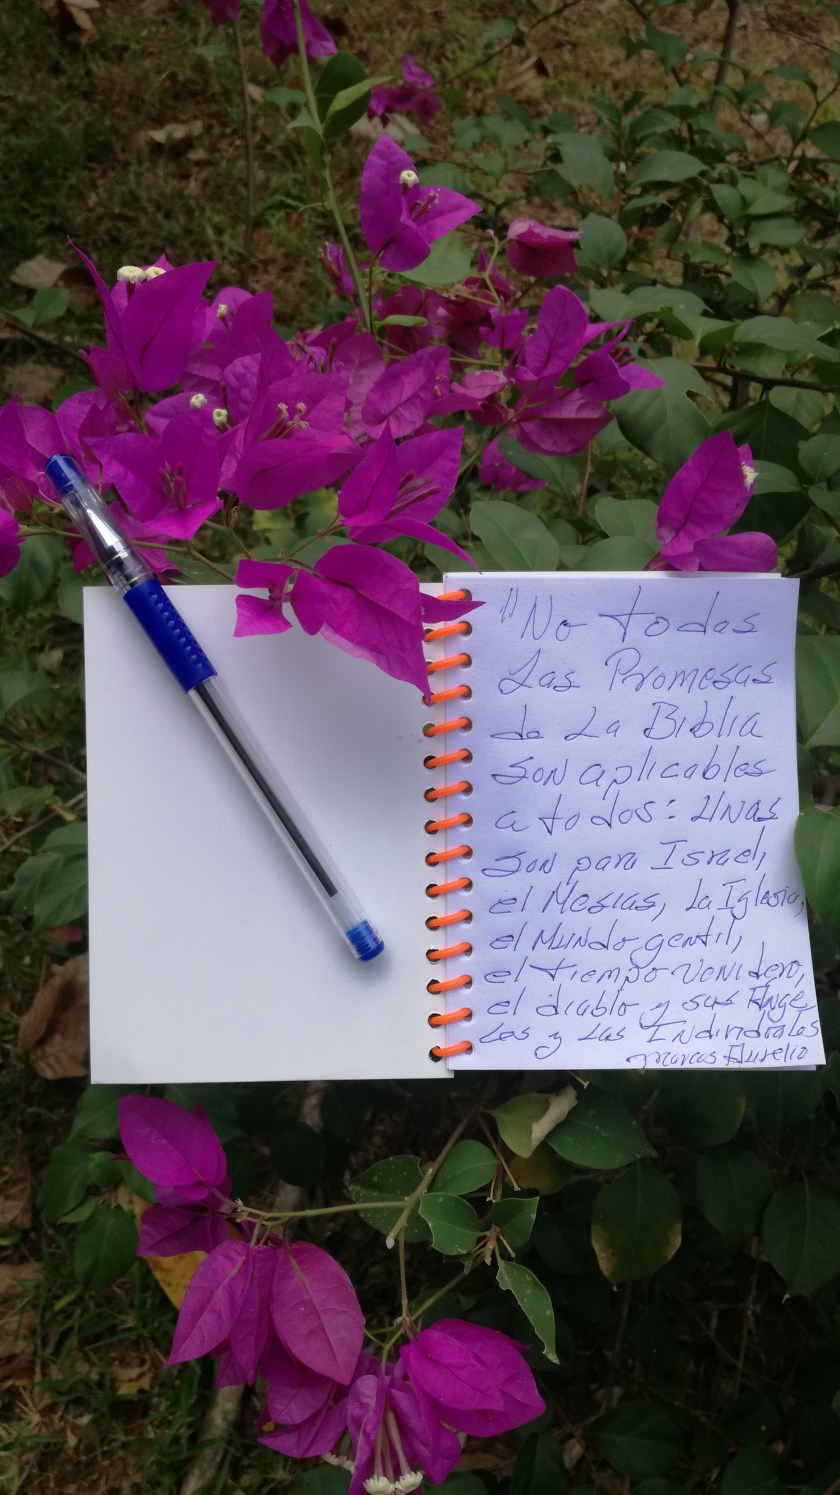 "No todas
Las Promesas
de La Biblia
son aplicables
a todos: Unas
son para Israel,
el Mesias, La Iglesia,
el Mundo gentil,
el tiempo venidero,
el diablo y sus Ange
Les y Las Individuales
Marcos Aurelio